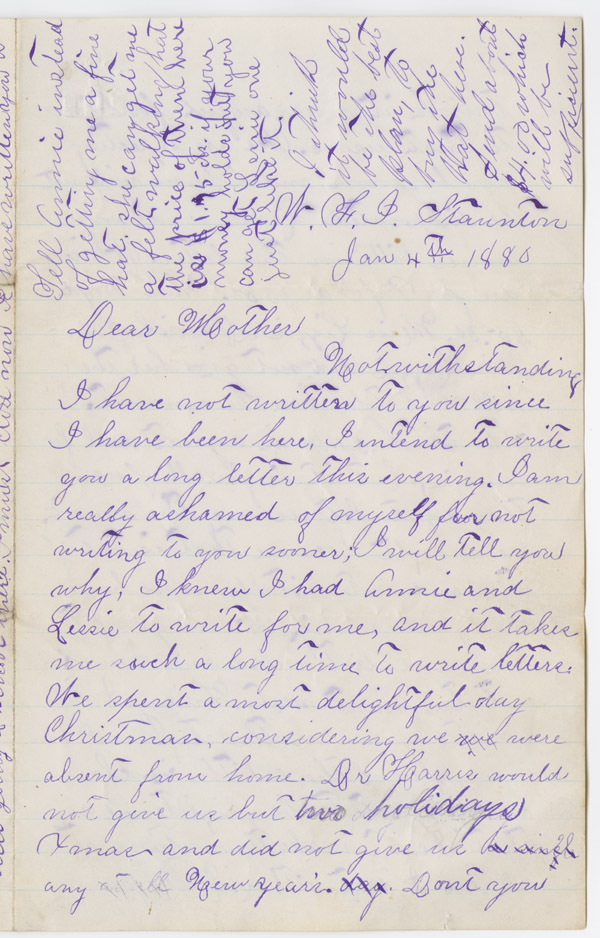 W. F. I. Staunton
Jan 4th 1880
Dear Mother
Notwithstanding
I have not written to you since
I have been here, I intend to write
you a long letter this evening. I am
really ashamed of myself for not
writing to you sooner; I will tell you
why; I knew I had Annie and
Lizzie to write for me, and it takes
me such a long time to write letters.
We spent a most delightful day
Christmas, considering we were
absent from home. Dr Harris would
not give us but two holidays
Xmas and did not give us
any New year's. Don't you
Tell Annie instead
of getting me a fine
hat, she can get me
a felt walking hat
the price of them here
is $1.75 cts. if your
money holds out you
can get Lizzie one
just like it.
I think
it would
be the best
plan to
buy the
hat here.
Send about
$4.00 which
will be
sufficient.